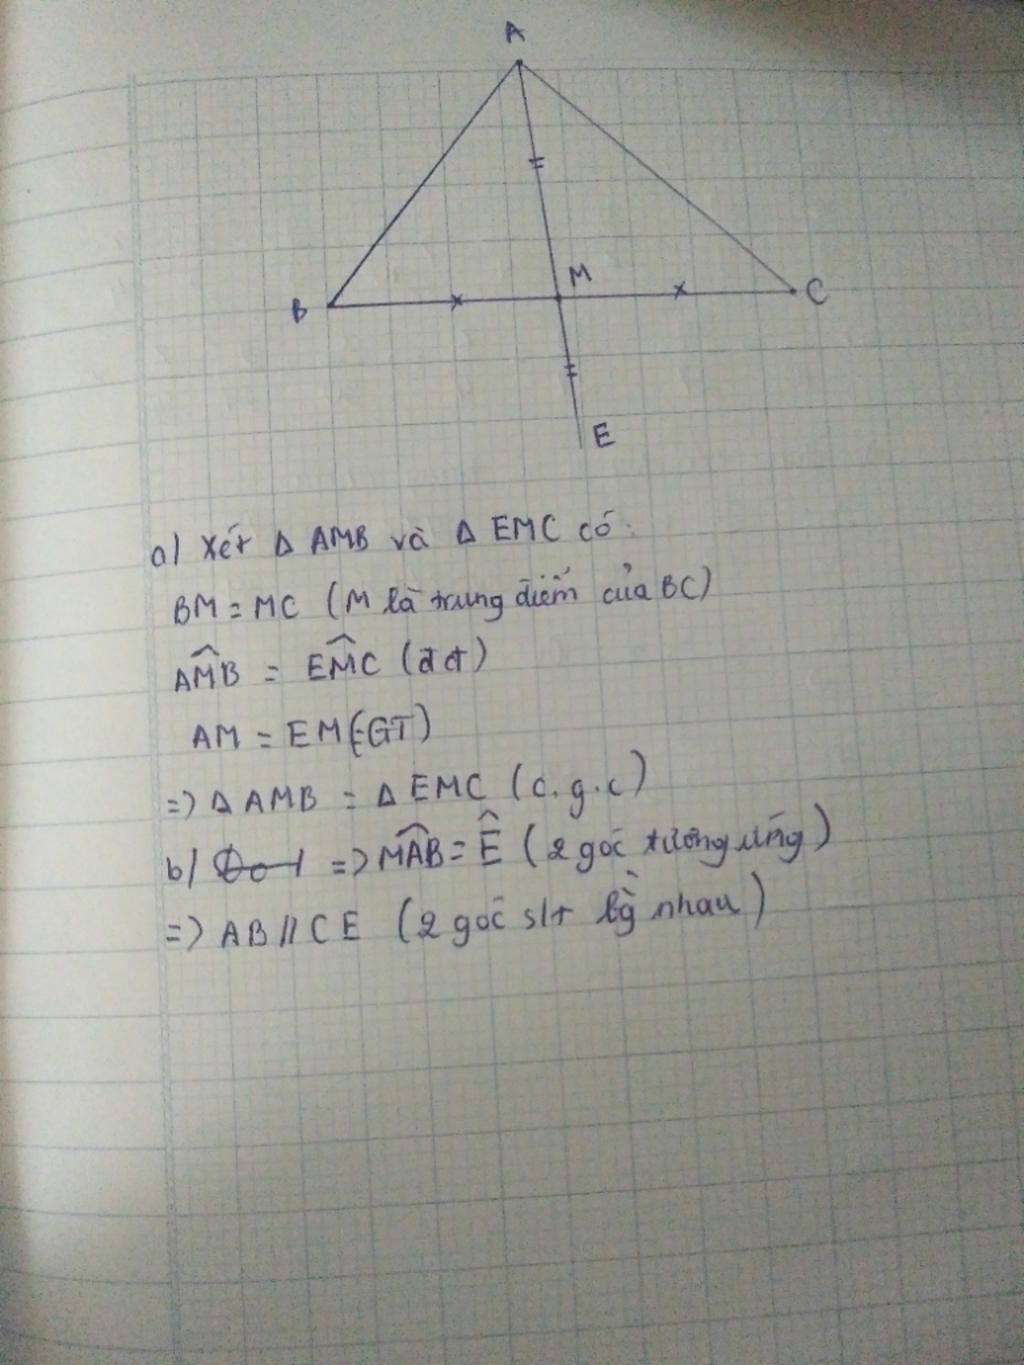 A
M
B
C
E
a) Xét Δ AMB và Δ EMC có:
BM = MC (M là trung điểm của BC)
AM̂B = EM̂C (đđ)
AM = EM (GT)
=) Δ AMB = Δ EMC (c.g.c)
b) =) MÂB = Ê (2 góc tương ứng)
=) AB // CE (2 góc slt bằng nhau)